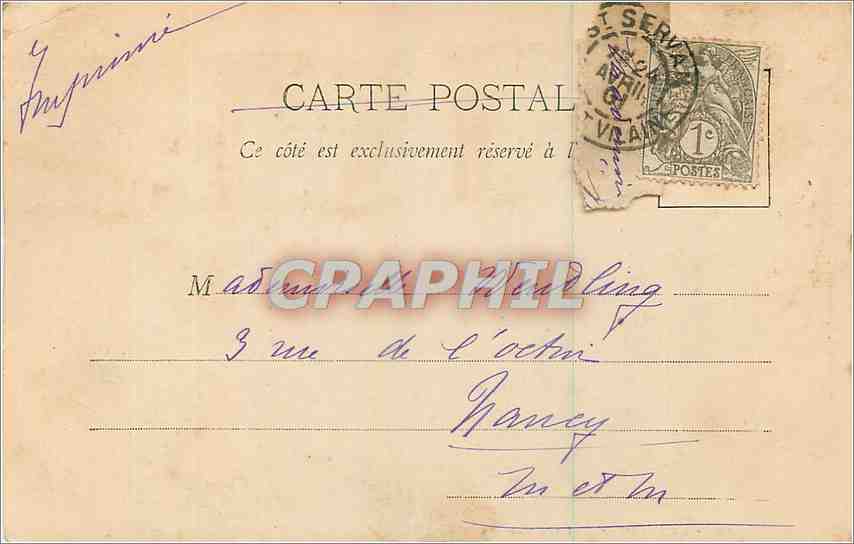 Imprimé
CARTE POSTAL
Ce côté est exclusivement réservé à l'
ST SERVAN
AVRIL
VILAINE
1c
POSTES
CPAPHIL
Mademoiselle Wendling
3 rue de l'octroi
Nancy
M et M